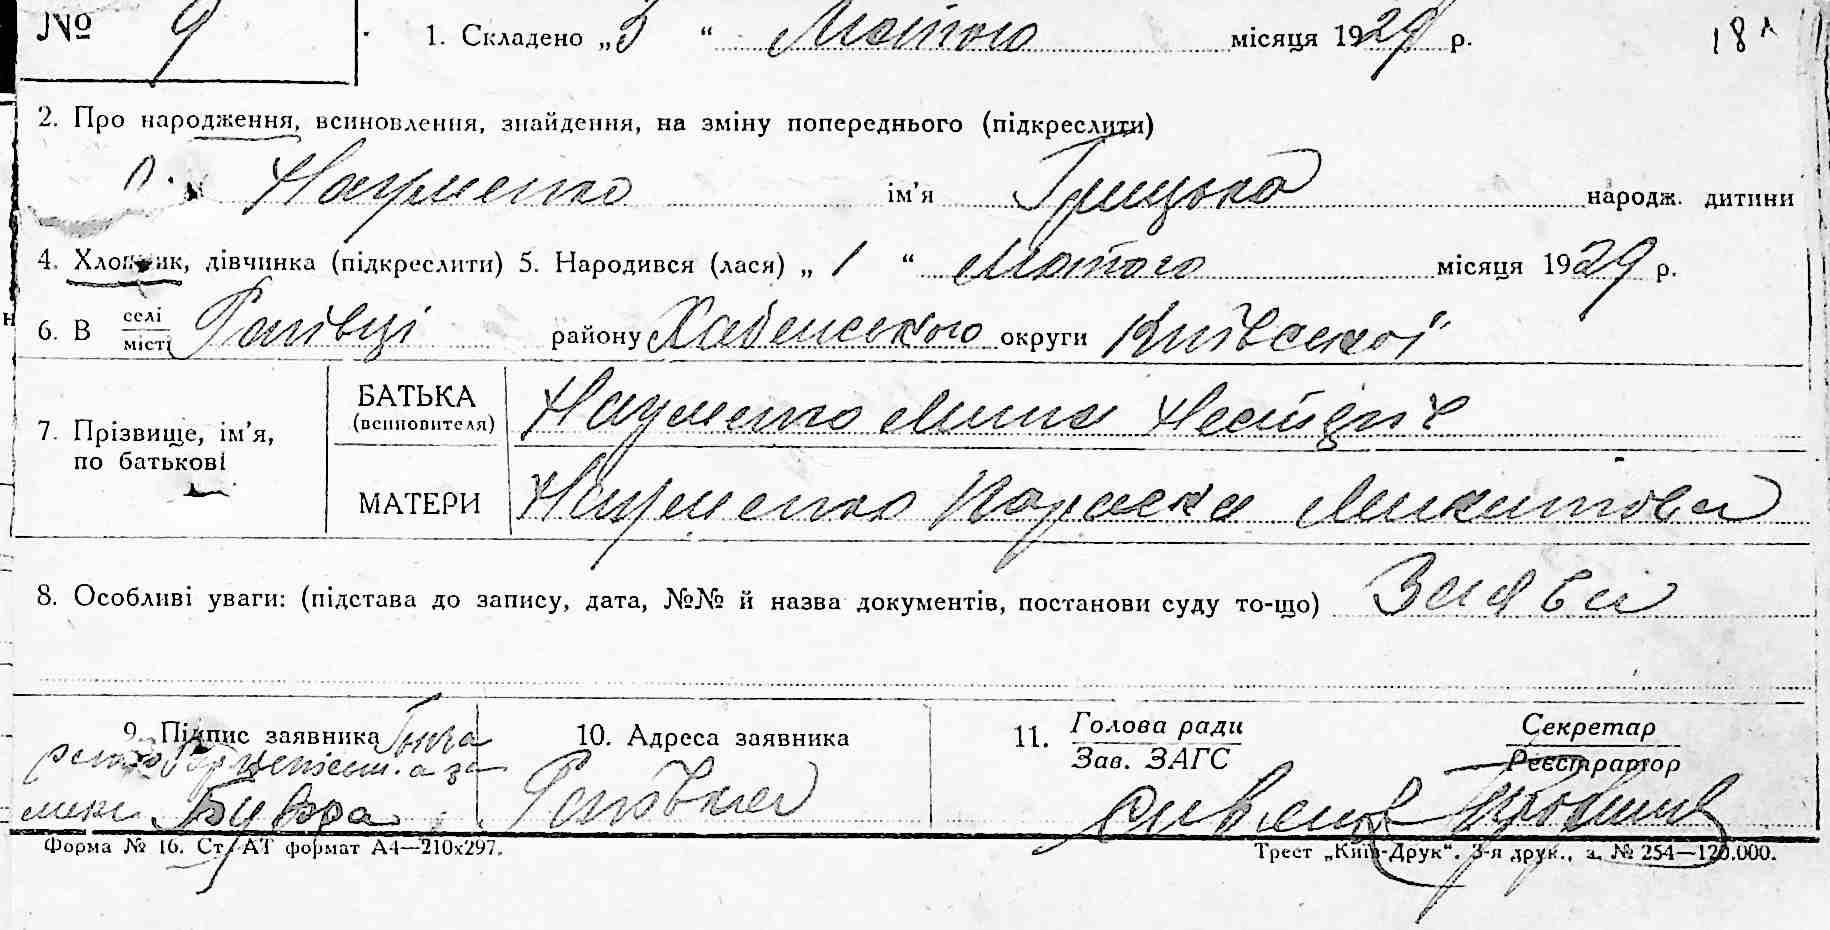 № 9 1. Складено „3 “ Лютого місяця 1929 р. 18
2. Про народження, всиновлення, знайдення, на зміну попереднього (підкреслити)
Науменко ім’я Грицько народж. дитини
4. Хлопчик, дівчинка (підкреслити) 5. Народився (лася) „ 1 “ Лютого місяця 1929 р.
6. В селі місті Рапівці району Хабенського округи Київської
7. Прізвище, ім’я, по батькові
БАТЬКА (всиновителя) Науменко Мина Нестірів
МАТЕРИ Науменко Параска Микитова
8. Особливі уваги: (підстава до запису, дата, №№ й назва документів, постанови суду то-що) Заява
9. Підпис заявника
10. Адреса заявника
11. Голова ради Зав. ЗАГС
Секретар Реєстратор
Форма № 16. Ст. АТ формат А4—210х297.
Трест „Київ-Друк“. 3-я друк., з. № 254—120.000.